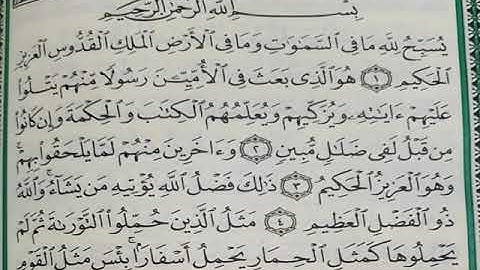 بِسْمِ ٱللَّهِ ٱلرَّحْمَٰنِ ٱلرَّحِيمِ
يُسَبِّحُ لِلَّهِ مَا فِى ٱلسَّمَٰوَٰتِ وَمَا فِى ٱلْأَرْضِ ٱلْمَلِكِ ٱلْقُدُّوسِ ٱلْعَزِيزِ
ٱلْحَكِيمِ ١ هُوَ ٱلَّذِى بَعَثَ فِى ٱلْأُمِّيِّـۧنَ رَسُولًا مِّنْهُمْ يَتْلُوا۟
عَلَيْهِمْ ءَايَٰتِهِۦ وَيُزَكِّيهِمْ وَيُعَلِّمُهُمُ ٱلْكِتَٰبَ وَٱلْحِكْمَةَ وَإِن كَانُوا۟
مِن قَبْلُ لَفِى ضَلَٰلٍ مُّبِينٍ ٢ وَءَاخَرِينَ مِنْهُمْ لَمَّا يَلْحَقُوا۟ بِهِمْ ۚ
وَهُوَ ٱلْعَزِيزُ ٱلْحَكِيمُ ٣ ذَٰلِكَ فَضْلُ ٱللَّهِ يُؤْتِيهِ مَن يَشَآءُ ۚ وَٱللَّهُ
ذُو ٱلْفَضْلِ ٱلْعَظِيمِ ٤ مَثَلُ ٱلَّذِينَ حُمِّلُوا۟ ٱلتَّوْرَىٰةَ ثُمَّ لَمْ
يَحْمِلُوهَا كَمَثَلِ ٱلْحِمَارِ يَحْمِلُ أَسْفَارًۢا ۚ بِئْسَ مَثَلُ ٱلْقَوْمِ